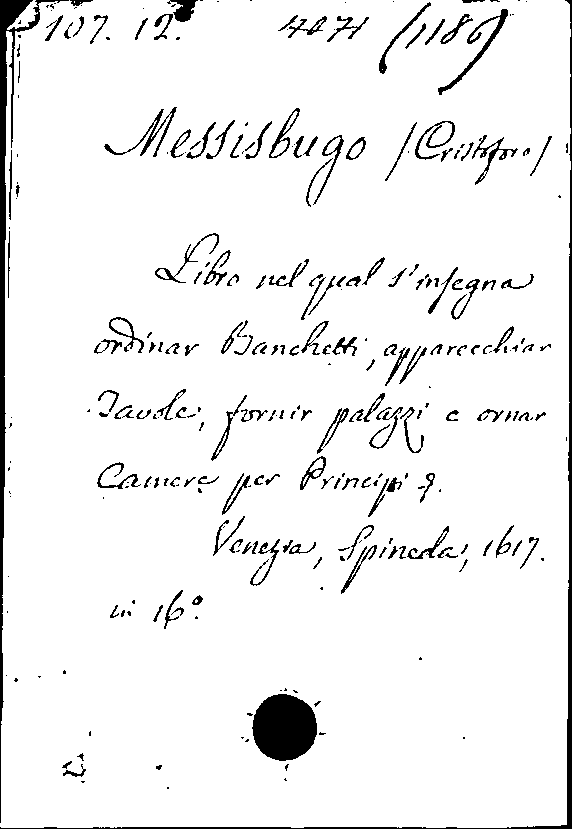 107. 12. 4071 (1186)
Messisbugo /Cristoforo/
Libro nel qual s'insegna
ordinar Banchetti, apparecchiar
Tavole, fornir palazzi e ornar
Camere per Principi &.
Venezia, Spineda, 1617.
in 16°.